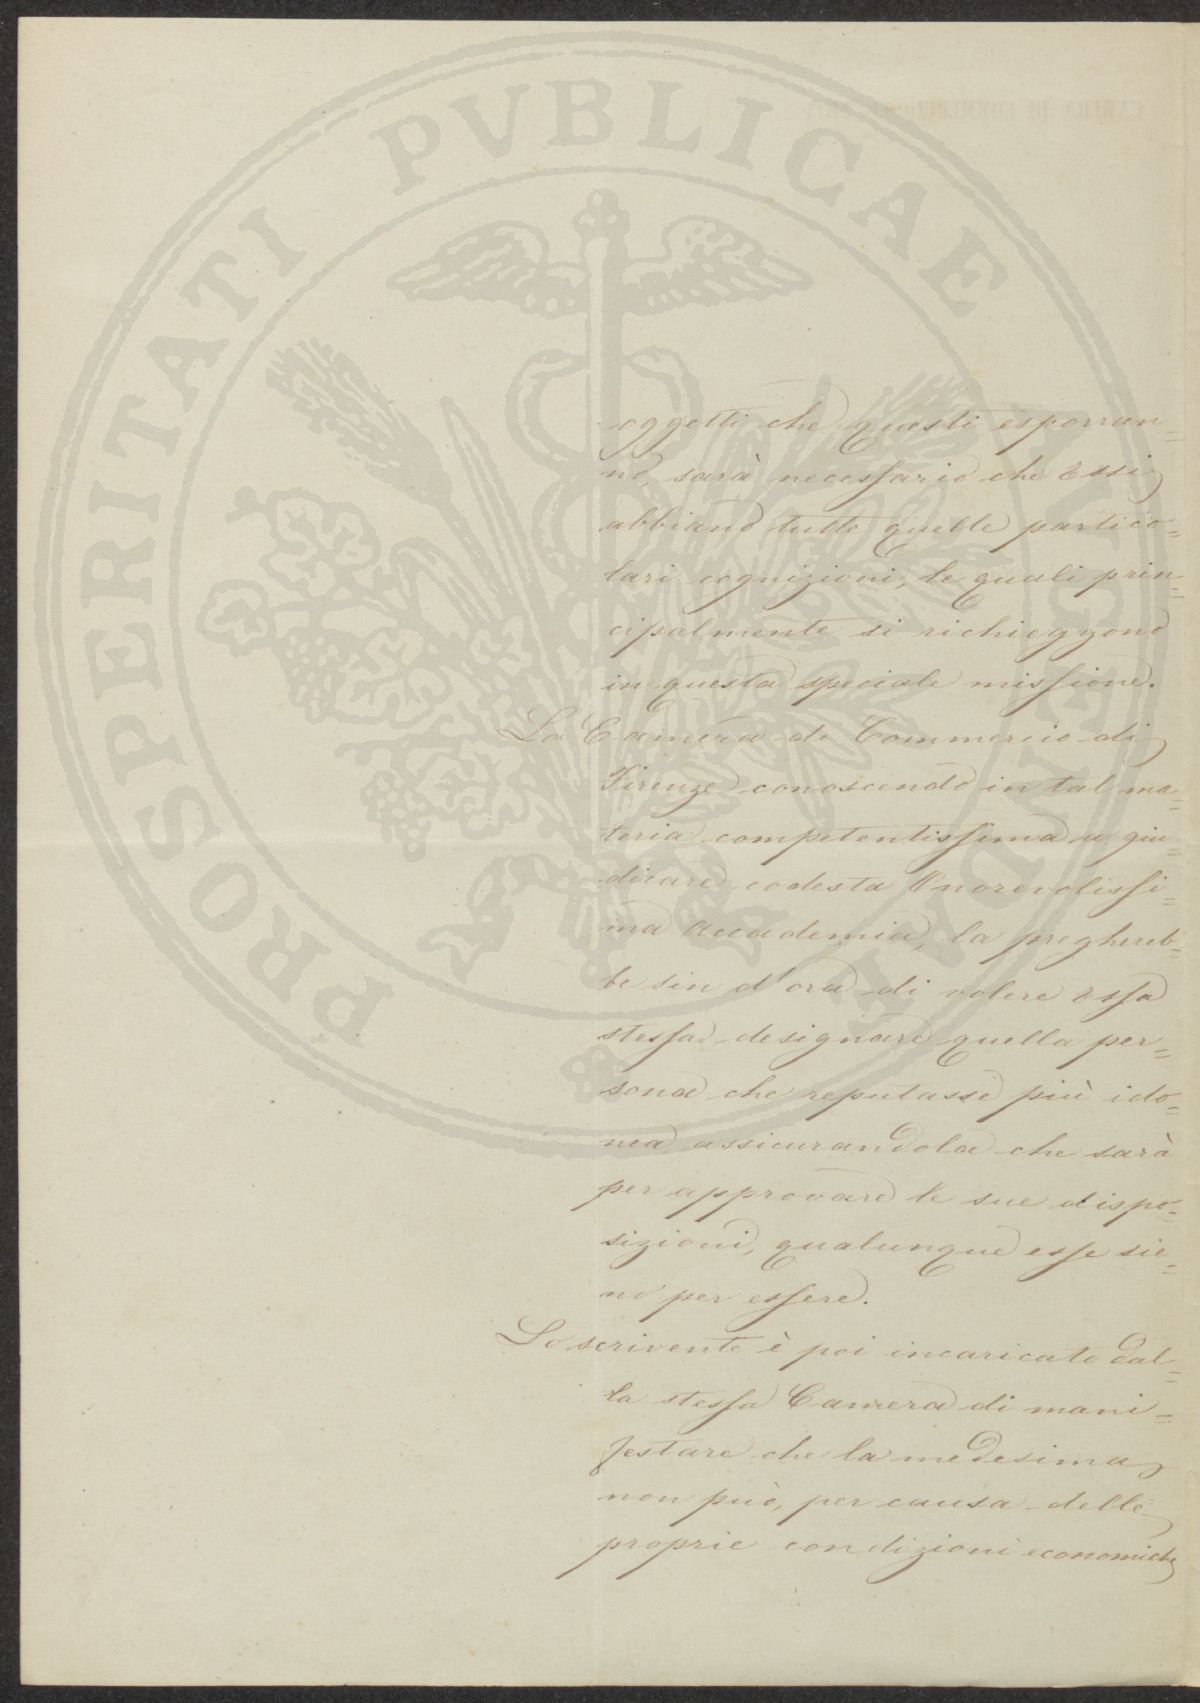 oggetti che questi esporran=
no, sarà necessario che Essi
abbiano tutte quelle partico=
lari cognizioni, le quali prin=
cipalmente si richieggono
in questa speciale missione.
La Camera di Commercio di
Firenze conoscendo in tal ma=
teria competentissima a giu=
dicare codesta Onorevolissi=
ma Accademia, la preghereb=
be sin d'ora di volere essa
stessa designare quella per=
sona che reputasse più ido=
nea, assicurandola che sarà
per approvare le sue dispo=
sizioni, qualunque esse sie=
no per essere.
Lo scrivente è poi incaricato dal=
la stessa Camera di mani=
festare che la medesima
non può, per causa delle
proprie condizioni economiche
PROSPERITATI PVBLICAE AVGENDAE